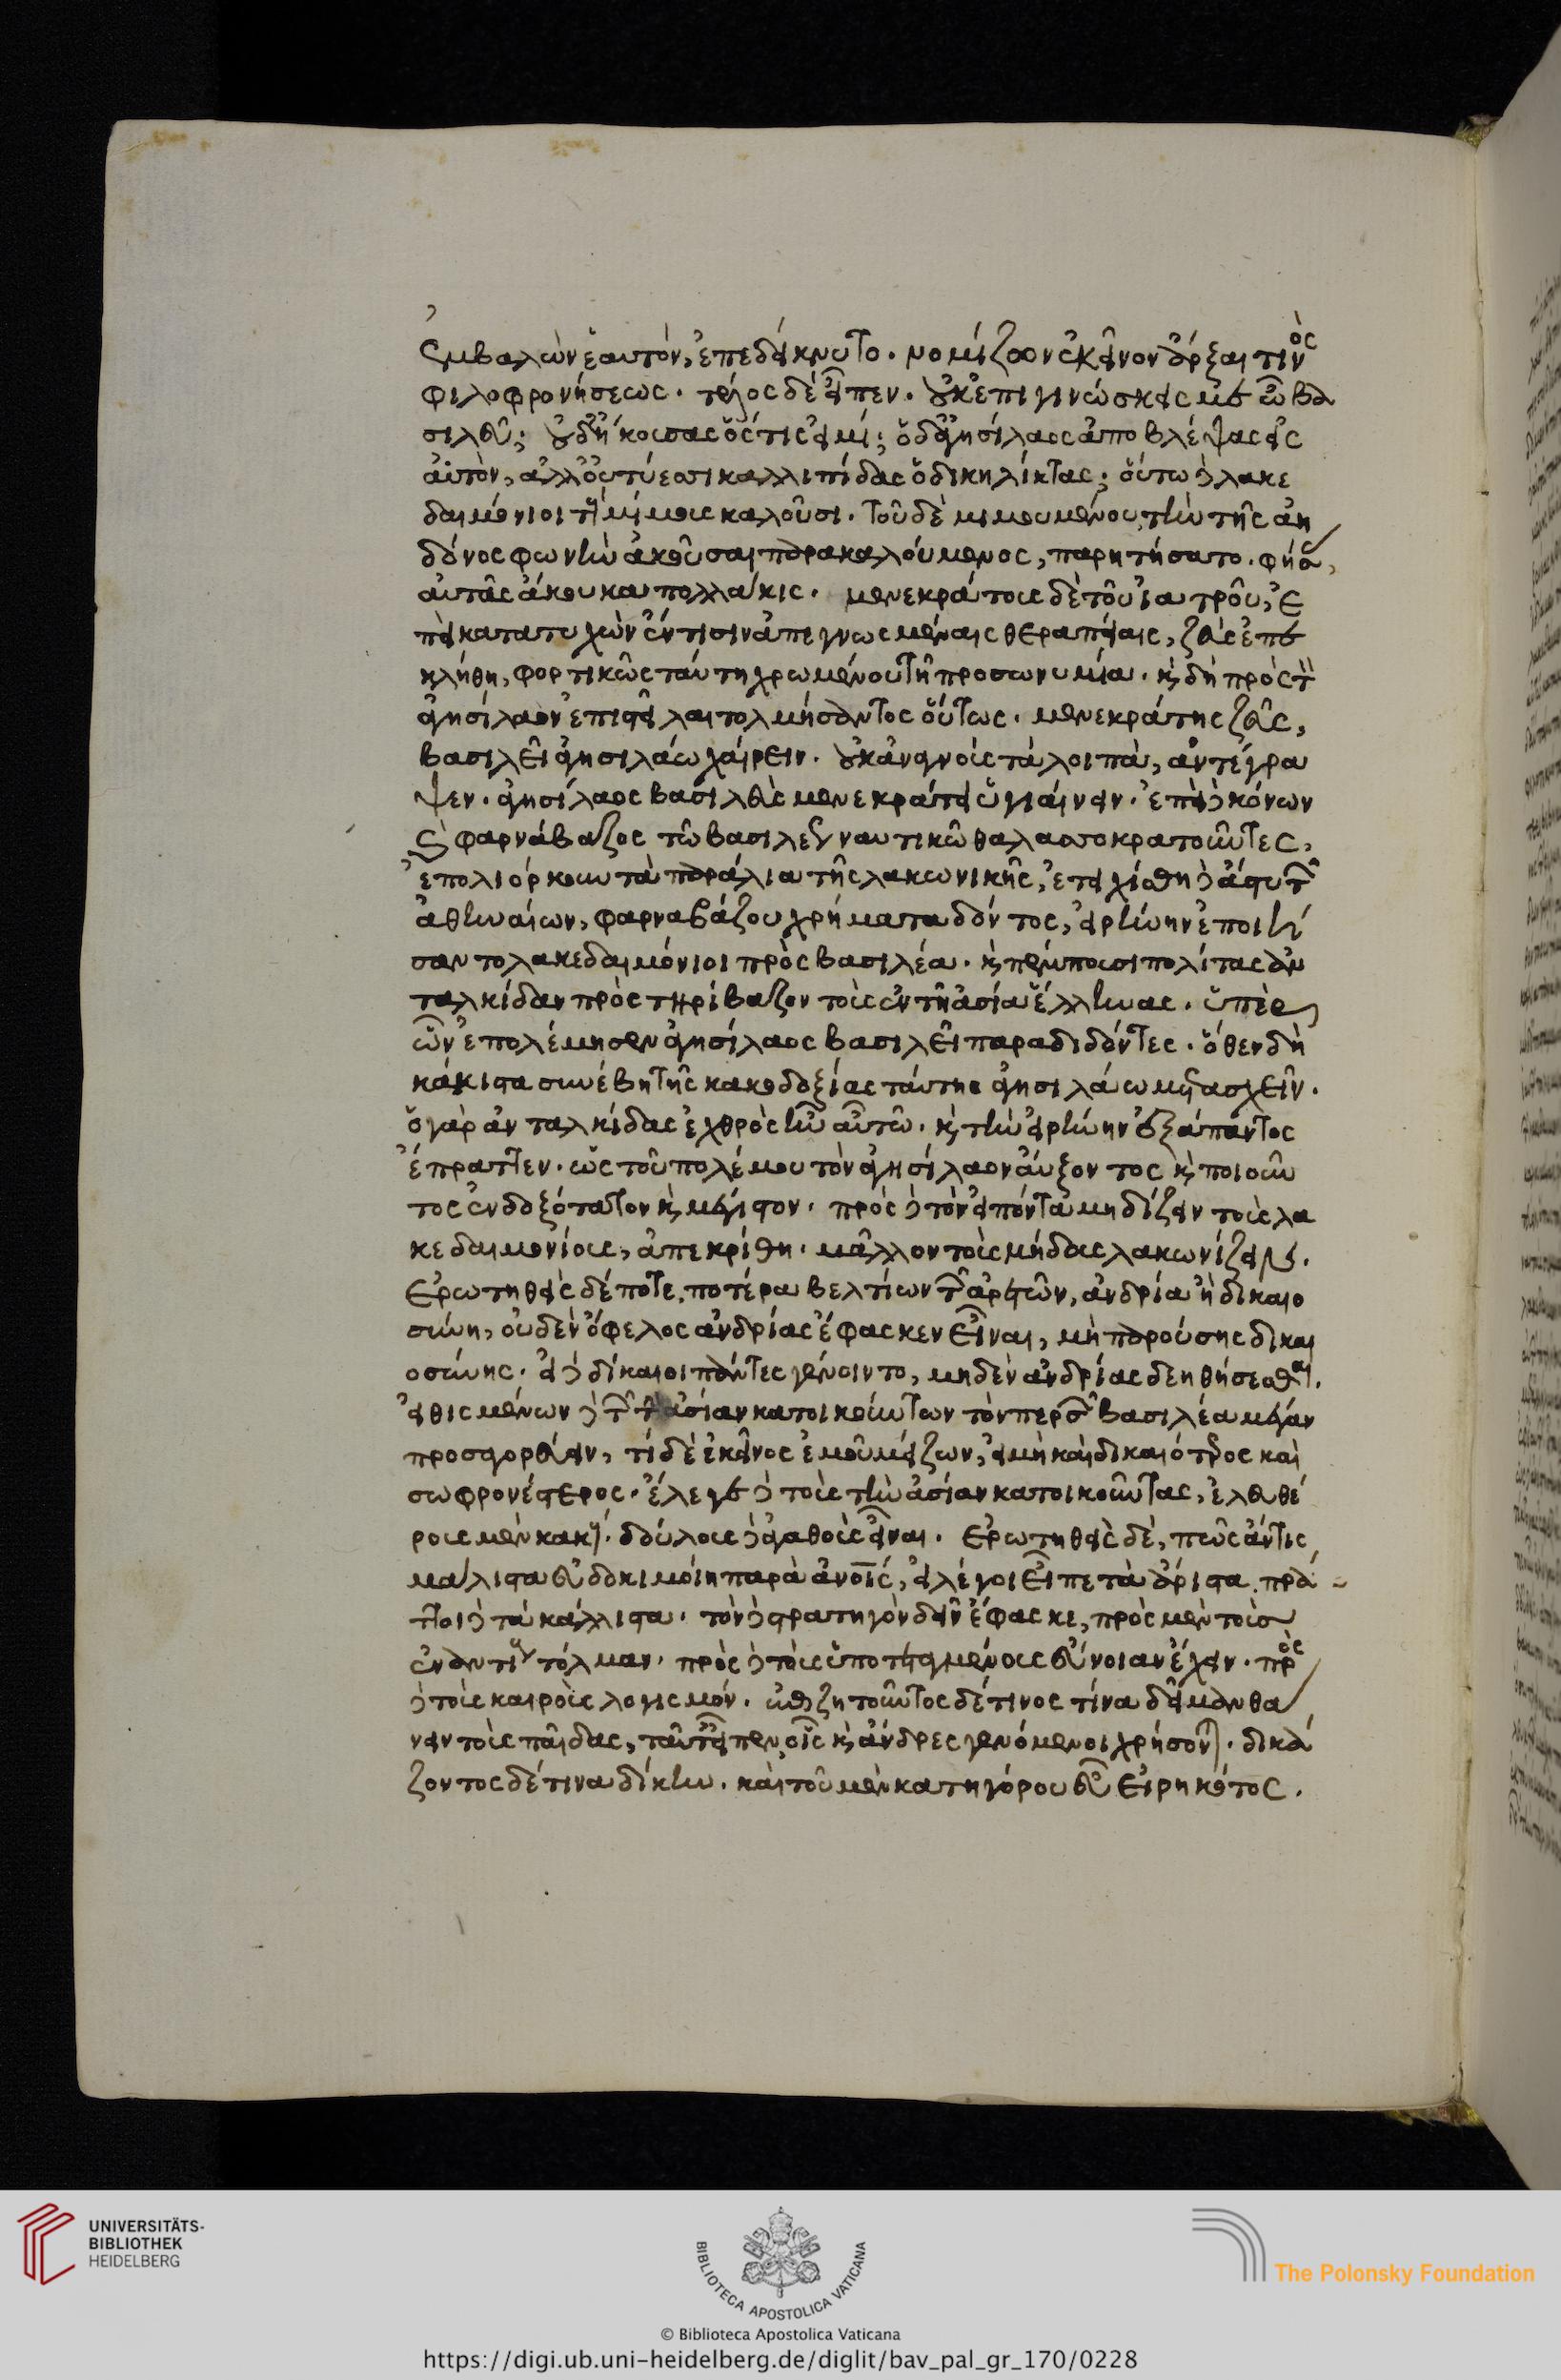 ἐμβαλὼν ἑαυτὸν, ἐπεδείκνυτο. νομίζων ἐκεῖνον ἄρξαι τινὸς
φιλοφρονήσεως. τέλος δὲ εἶπεν. οὐκ ἐπιγινώσκεις με ὦ βα
σιλεῦ; οὐδ' ἤκουσας ὅς τις εἰμί; ὁ δ' ἀγησίλαος ἀποβλέψας εἰς
αὐτὸν, ἀλλ' οὐ τύ ἐσσι καλλιπίδας ὁ δικηλίκτας; οὕτω δὲ λακε
δαιμόνιοι τοὺς μίμους καλοῦσι. τοῦ δὲ μιμουμένου τὴν τῆς ἀη
δόνος φωνὴν ἀκοῦσαι παρακαλούμενος, παρητήσατο. φήσας,
αὐτᾶς ἄκουκα πολλάκις. μενεκράτους δὲ τοῦ ἰατροῦ, ἐ
πεὶ κατατυχὼν ἔν τισιν ἀπεγνωσμέναις θεραπείαις, ζεὺς ἐπε
κλήθη, φορτικῶς ταύτη χρωμένου τῆ προσωνυμία. καὶ δὴ πρὸς τὸν
ἀγησίλαον ἐπιστεῖλαι τολμήσαντος οὕτως. μενεκράτης ζεὺς,
βασιλεῖ ἀγησιλάω χαίρειν. οὐκ ἀναγνοὺς τὰ λοιπὰ, ἀντέγρα
ψεν. ἀγησίλαος βασιλεὺς μενεκράτει ὑγιαίνειν. ἐπεὶ δὲ κόνων
καὶ φαρνάβαζος τῶ βασιλέως ναυτικῶ θαλασσοκρατοῦντες,
ἐπολιόρκουν τὰ παράλια τῆς λακωνικῆς, ἐτειχίσθη δὲ ἄστυ τῶν
ἀθηναίων, φαρναβάζου χρήματα δόντος, εἰρήνην ἐποιή
σαντο λακεδαιμόνιοι πρὸς βασιλέα. καὶ πέμπουσι πολίτας ἀν
ταλκίδαν πρὸς τηρίβαζον τοὺς ἐν τῆ ἀσία ἕλληνας. ὑπὲρ
ὧν ἐπολέμησεν ἀγησίλαος βασιλεῖ παραδιδόντες. ὅθεν δὴ
κάκιστα συνέβη τῆς κακοδοξίας ταύτης ἀγησιλάω μετασχεῖν.
ὁ γὰρ ἀνταλκίδας ἐχθρὸς ἦν αὐτῶ. καὶ τὴν εἰρήνην ἐξ ἅπαντος
ἔπραττεν. ὡς τοῦ πολέμου τὸν ἀγησίλαον αὔξοντος καὶ ποιοῦν
τος ἐνδοξότατον καὶ μέγιστον. πρὸς δὲ τὸν εἰπόντα μηδίζειν τοὺς λα
κεδαιμονίους, ἀπεκρίθη. μᾶλλον τοὺς μήδους λακωνίζειν.
ἐρωτηθεὶς δέ ποτε, ποτέρα βελτίων τῶν ἀρετῶν, ἀνδρία ἢ δικαιο
σύνη, οὐδὲν ὄφελος ἀνδρίας ἔφασκεν εἶναι, μὴ παρούσης δικαι
οσύνης. εἰ δὲ δίκαιοι πάντες γένοιντο, μηδὲν ἀνδρίας δεηθήσεσθαι.
εἰθισμένων δὲ τῶν τὴν ἀσίαν κατοικούντων τὸν περσῶν βασιλέα μέγαν
προσαγορεύειν, τί δὲ ἐκεῖνος ἐμοῦ μείζων, εἰ μὴ καὶ δικαιότερος καὶ
σωφρονέστερος. ἔλεγε δὲ τοὺς τὴν ἀσίαν κατοικοῦντας, ἐλευθέ
ρους μὲν κακούς. δούλους δὲ ἀγαθοὺς εἶναι. ἐρωτηθεὶς δὲ, πῶς ἄν τις
μάλιστα εὐδοκιμοίη παρὰ ἀνοις, εἰ λέγοι εἶπε τὰ ἄριστα. πράτ
τοι δὲ τὰ κάλλιστα. τὸν δὲ στρατηγὸν δεῖν ἔφασκε, πρὸς μὲν τοὺς
ἐναντίους τόλμαν. πρὸς δὲ τοὺς ὑποτεταγμένους εὔνοιαν ἔχειν. πρὸς
δὲ τοὺς καιροὺς λογισμόν. ἐπιζητοῦντος δέ τινος τίνα δεῖ μανθά
νειν τοὺς παῖδας, ταῦτ' εἶπεν, οἷς καὶ ἄνδρες γενόμενοι χρήσονται. δικά
ζοντος δέ τινα δίκην. καὶ τοῦ μὲν κατηγόρου εὖ εἰρηκότος.
UNIVERSITÄTS-
BIBLIOTHEK
HEIDELBERG
BIBLIOTECA APOSTOLICA VATICANA
The Polonsky Foundation
© Biblioteca Apostolica Vaticana
https://digi.ub.uni-heidelberg.de/diglit/bav_pal_gr_170/0228